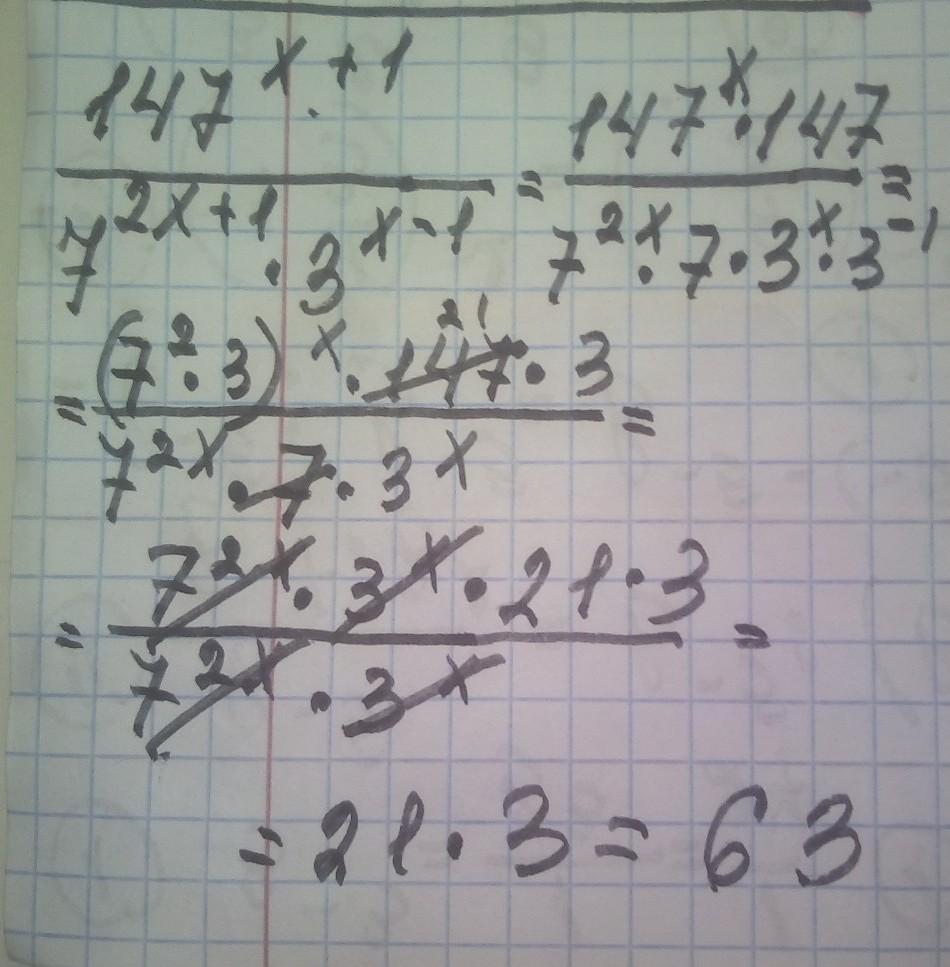 147^{x+1} / (7^{2x+1} · 3^{x-1}) = (147^x · 147) / (7^{2x} · 7 · 3^x · 3^{-1}) =
= ((7^2 · 3)^x · 147 21 · 3) / (7^{2x} · 7 · 3^x) =
= (7^{2x} · 3^x · 21 · 3) / (7^{2x} · 3^x) =
= 21 · 3 = 63